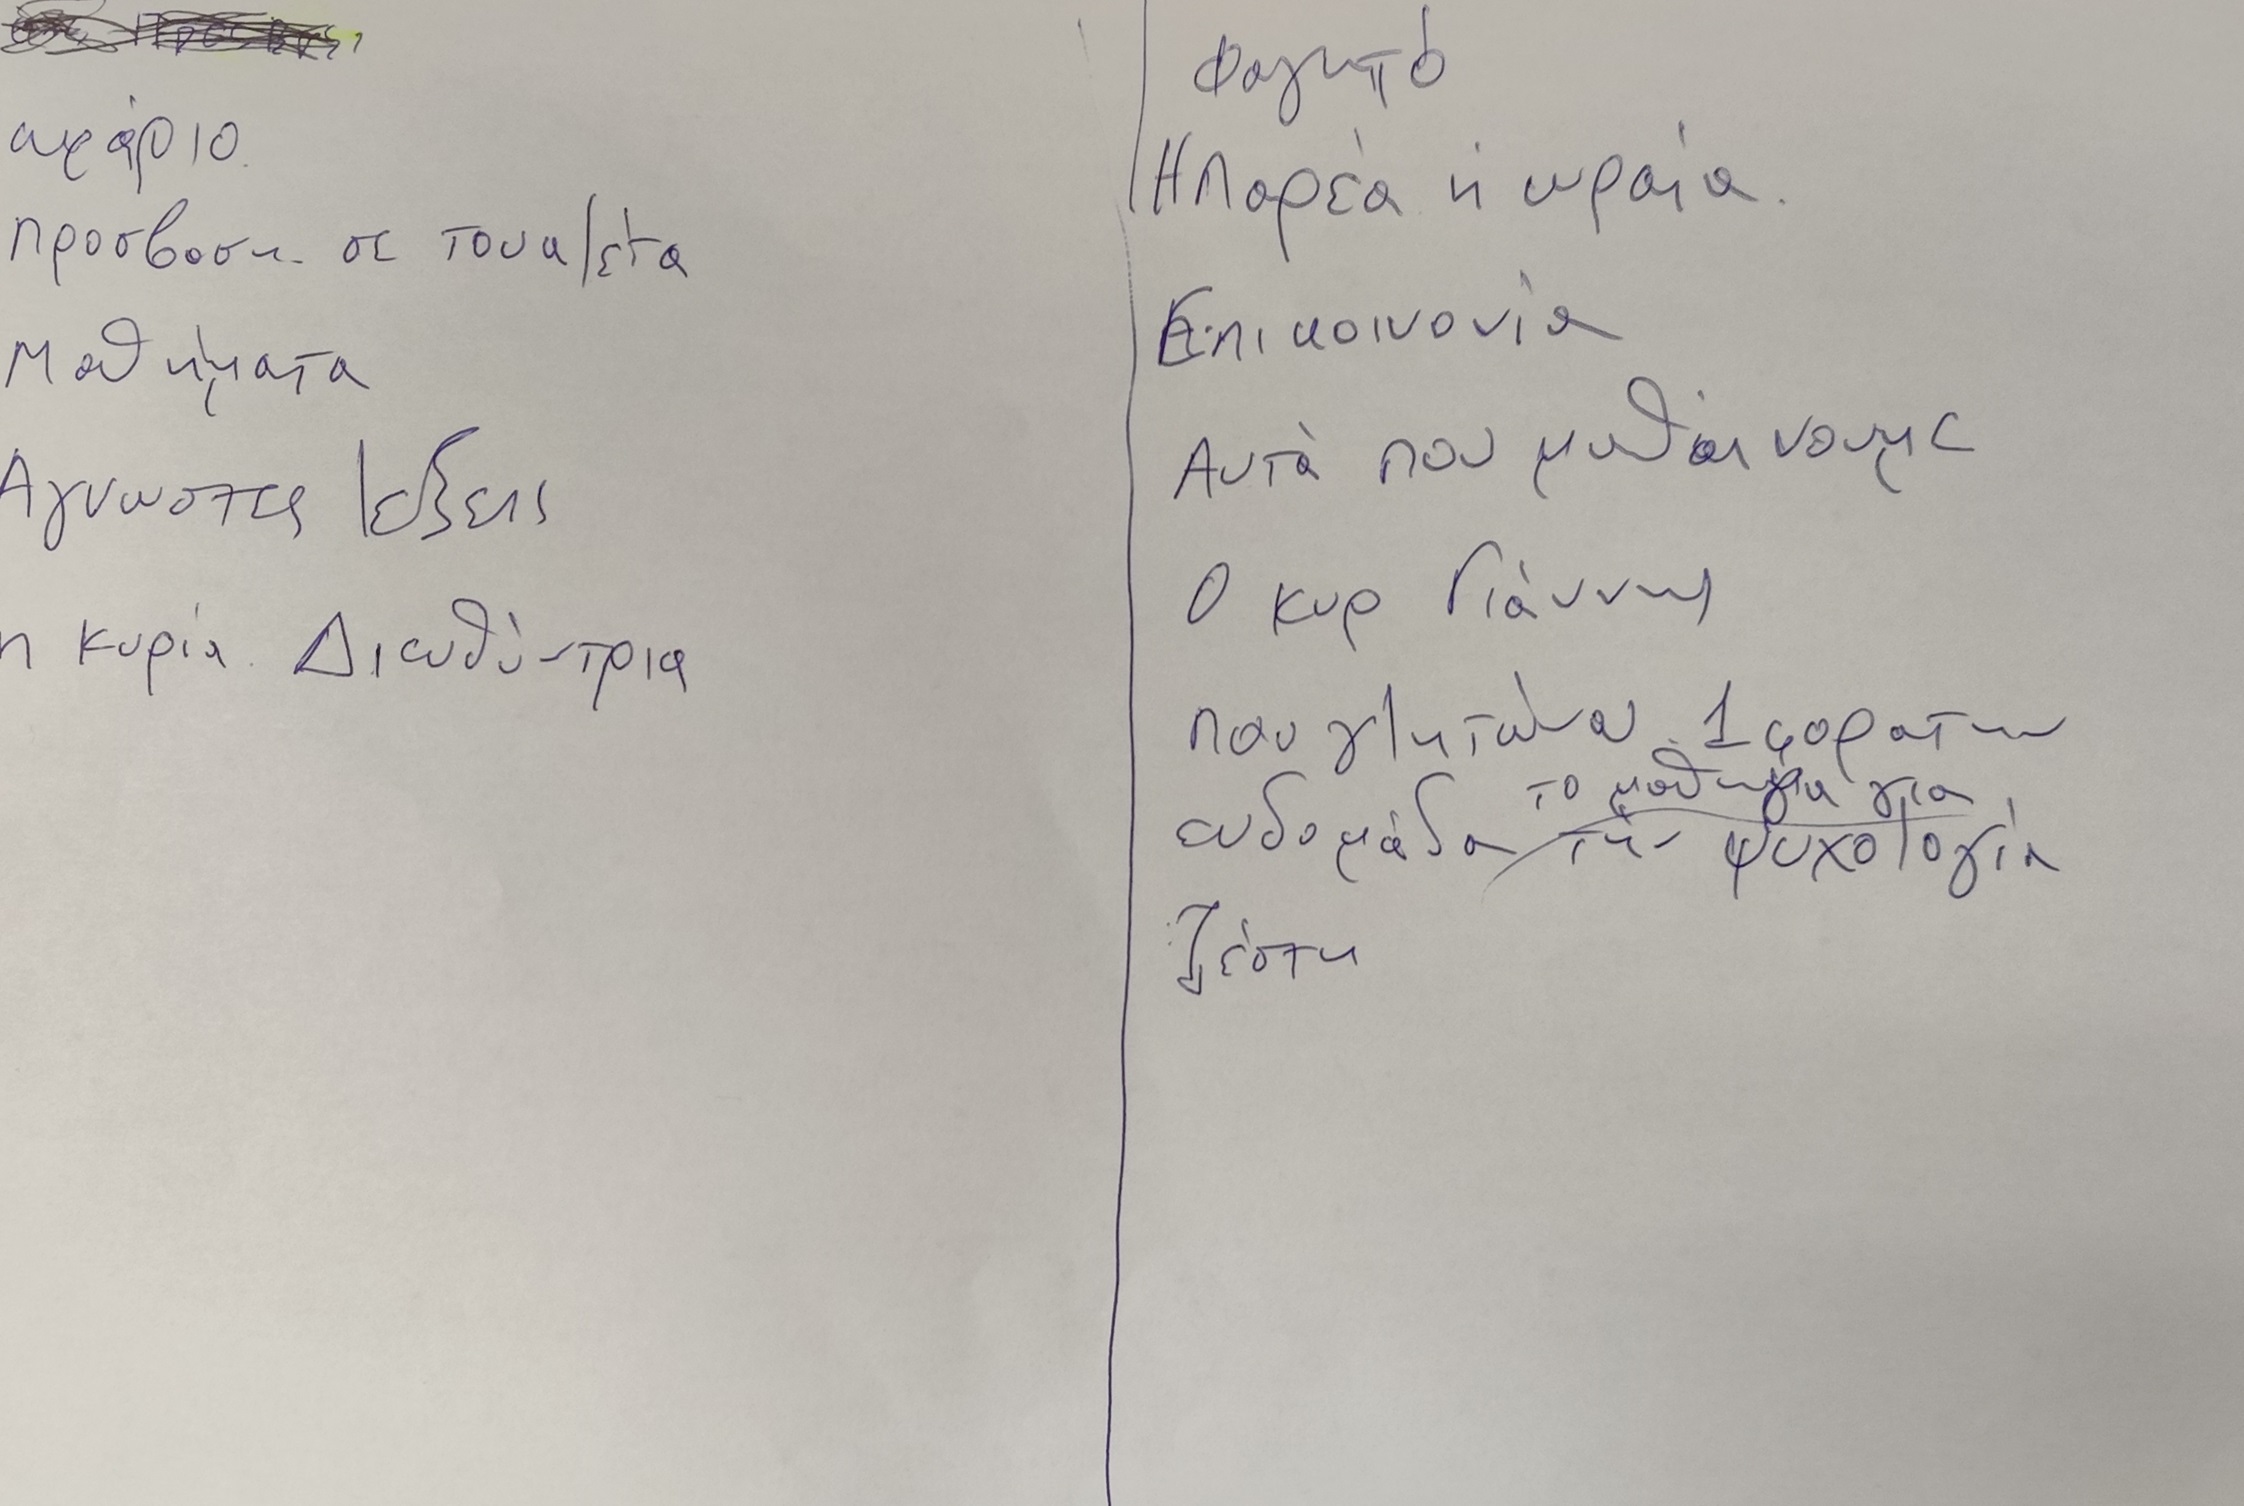 ωράριο
προσβαση σε τουαλέτα
Μαθήματα
Αγνωστες λεξεις
η κυρία Διευθύντρια
Φαγητό
Η Παρέα ή ωραία.
Επικοινονία
Αυτά που μαθαίνουμε
Ο κυρ Γιάννης
που γλητώνω 1 φορα την
ευδομάδα το μαθημα για
την ψυχολογία
Ζέστη